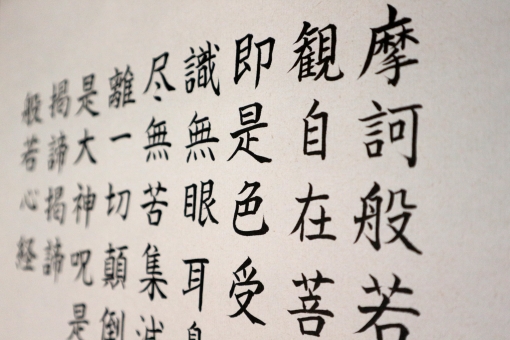 摩訶般若
観自在菩
即是色受
識無眼耳鼻
尽無苦集滅
離一切顛倒
是大神呪是
掲諦掲諦
般若心経